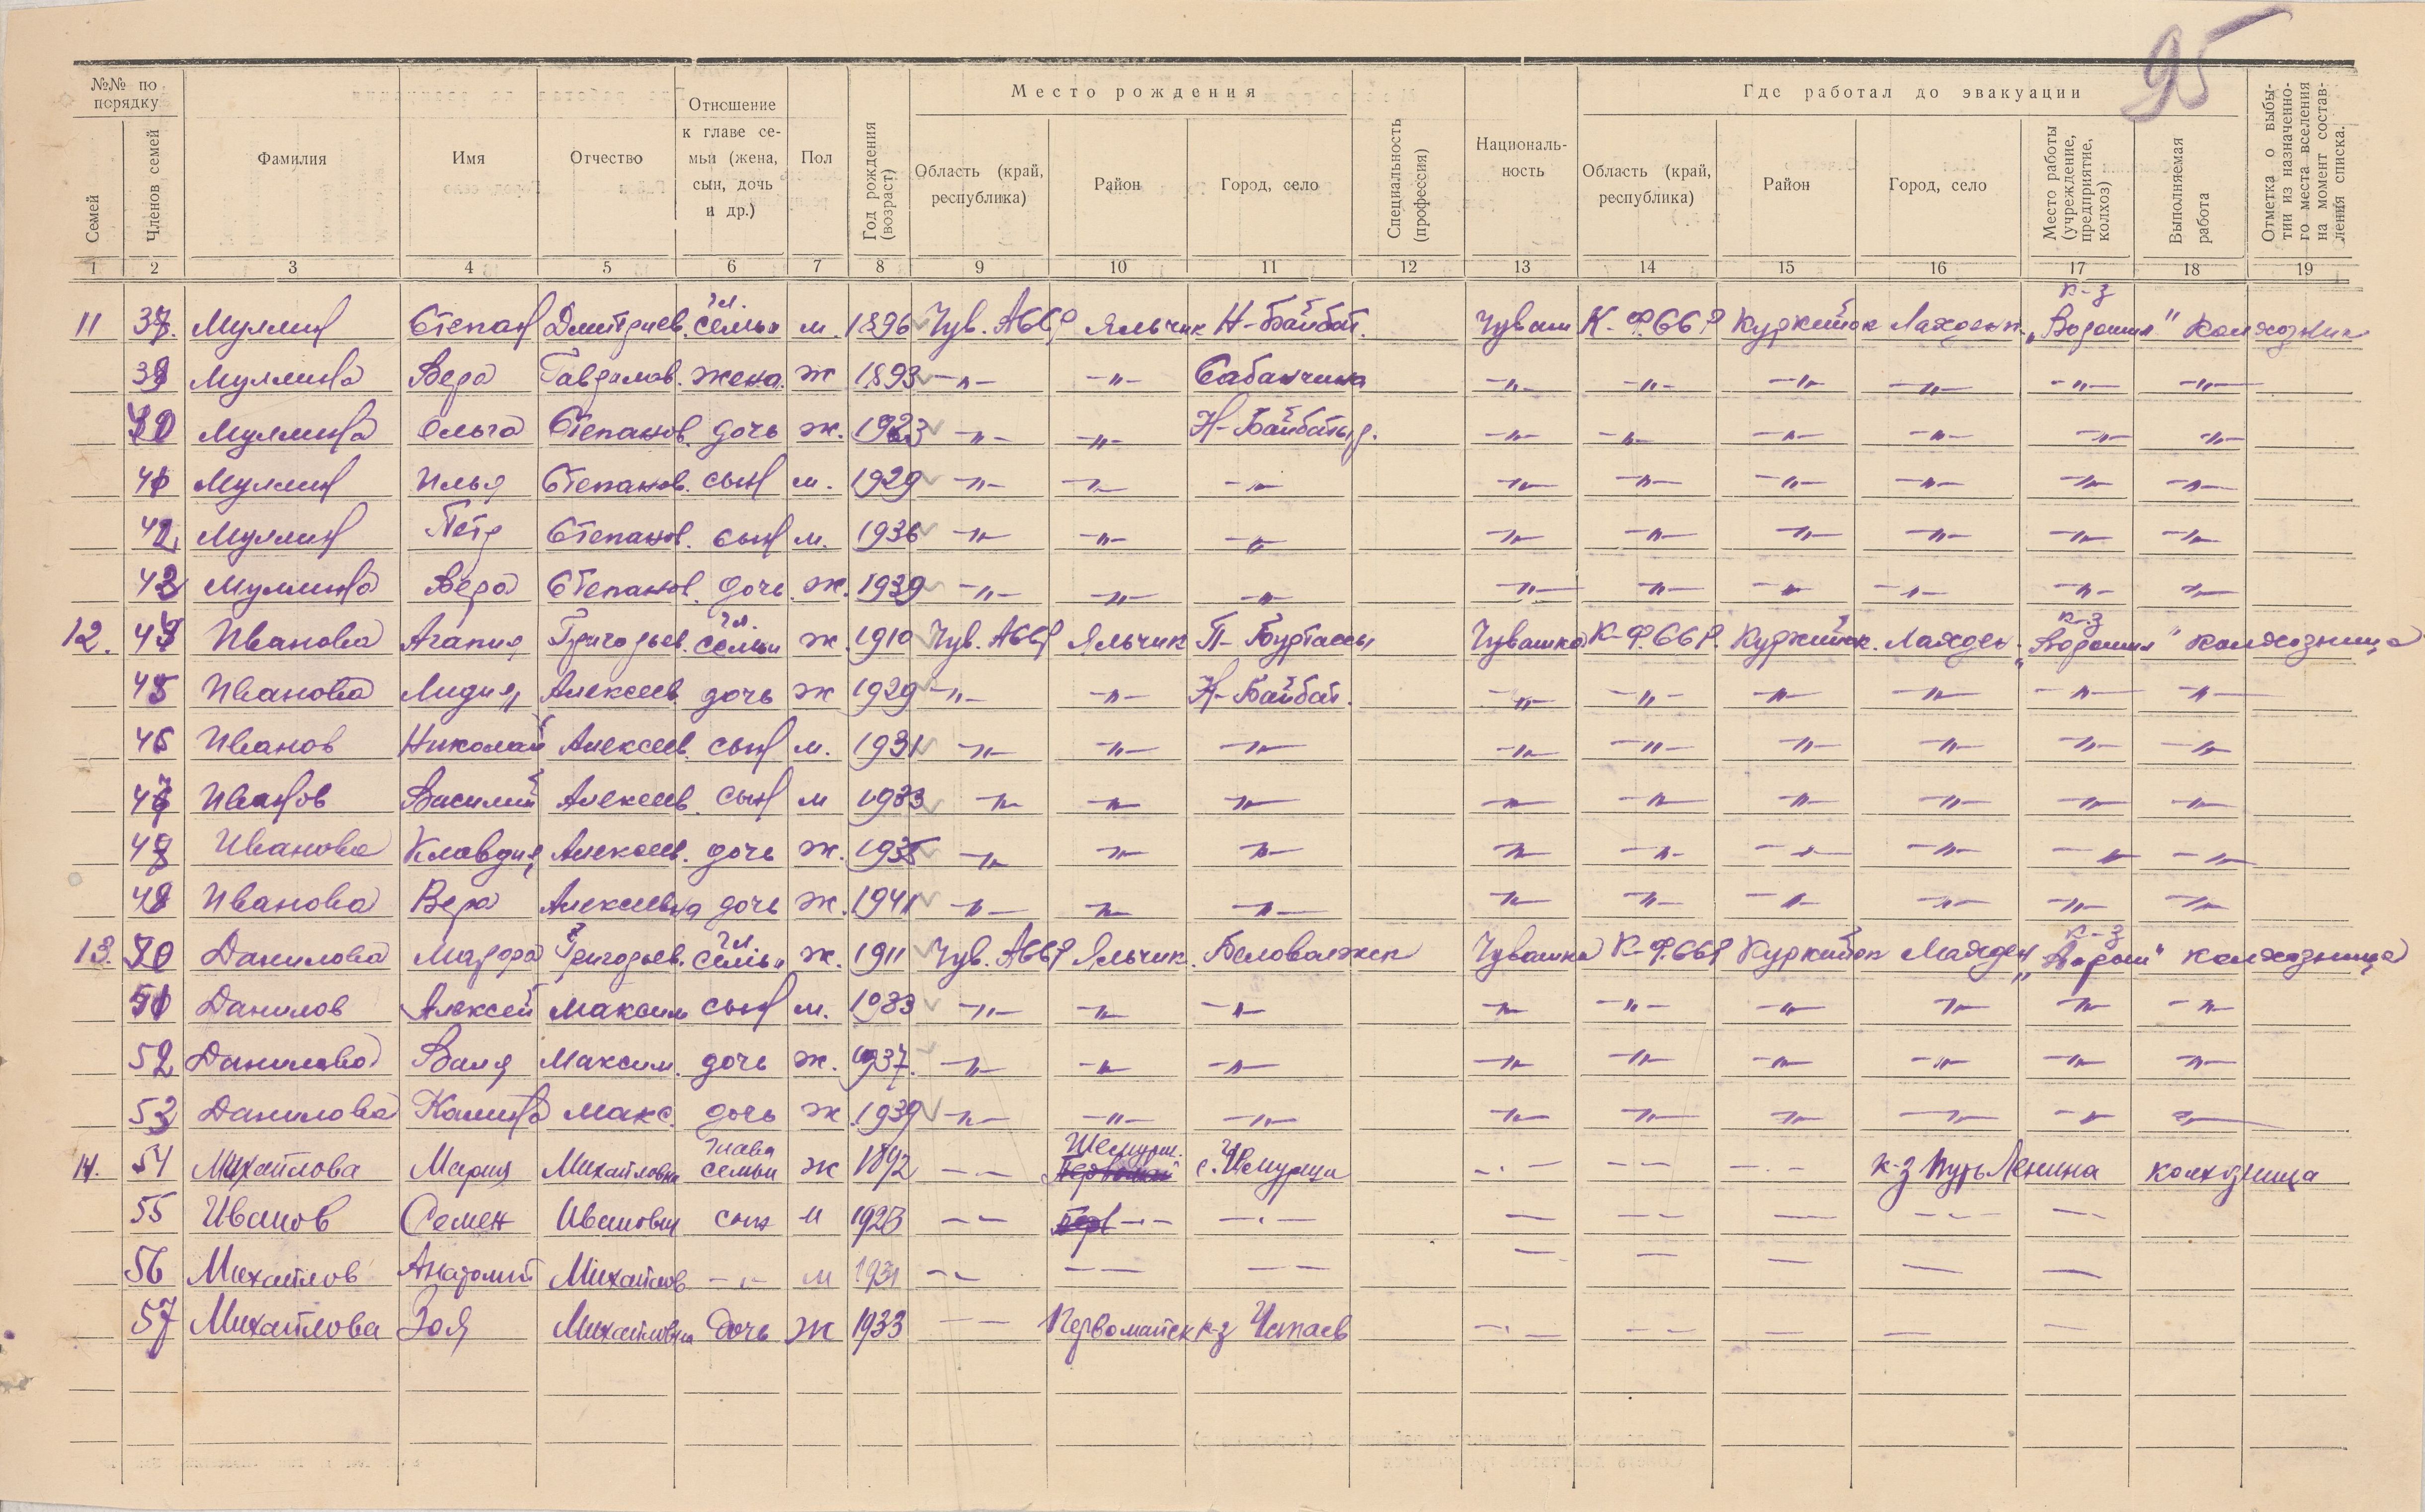 95
№№ по порядку
Семей
Членов семей
Фамилия
Имя
Отчество
Отношение к главе семьи (жена, сын, дочь и др.)
Пол
Год рождения (возраст)
Место рождения
Область (край, республика)
Район
Город, село
Специальность (профессия)
Националь-ность
Где работал до эвакуации
Область (край, республика)
Район
Город, село
Место работы (учреждение, предприятие, колхоз)
Выполняемая работа
Отметка о выбытии из назначенного места вселения на момент составления списка.
1 2 3 4 5 6 7 8 9 10 11 12 13 14 15 16 17 18 19
11 Муллин Степан Дмитриев. гл. семьи м. 1896 Чув. АССР Яльчик Н-Байбат. Чуваш К-Ф.ССР Куркийок к-з „Ворошил" колхозник
Муллина Вера Гаврилов. жена ж 1893 –〃– –〃– Сабанчина –〃– –〃– –〃– –〃– –〃– –〃–
Муллина Ольга Степанов. дочь ж. 1923 –〃– –〃– Н-Байбатыр. –〃– –〃– –〃– –〃– –〃– –〃–
41 Муллин Илья Степанов. сын м. 1929 –〃– –〃– –〃– –〃– –〃– –〃– –〃– –〃– –〃–
42 Муллин Петр Степанов. сын м. 1936 –〃– –〃– –〃– –〃– –〃– –〃– –〃– –〃– –〃–
43 Муллина Вера Степанов. дочь ж. 1939 –〃– –〃– –〃– –〃– –〃– –〃– –〃– –〃– –〃–
12. Иванова Агапия Григорьев. гл. семьи ж. 1910 Чув. АССР Яльчик П-Буртассы Чувашка К-Ф.ССР. Куркийок. к-з „Ворошил" колхозница
45 Иванова Лидия Алексеев. дочь ж 1929 –〃– –〃– Н-Байбат. –〃– –〃– –〃– –〃– –〃– –〃–
46 Иванов Николай Алексеев. сын м. 1931 –〃– –〃– –〃– –〃– –〃– –〃– –〃– –〃– –〃–
47 Иванов Василий Алексеев. сын м 1933 –〃– –〃– –〃– –〃– –〃– –〃– –〃– –〃– –〃–
Иванова Клавдия Алексеев. дочь ж. 1935 –〃– –〃– –〃– –〃– –〃– –〃– –〃– –〃– –〃–
Иванова Вера Алексеевна дочь ж. 1941 –〃– –〃– –〃– –〃– –〃– –〃– –〃– –〃– –〃–
13. Данилова Григорьев. гл. семьи ж. 1911 Чув. АССР Яльчик. Беловолжск Чувашка К-Ф.ССР Куркийок к-з „Ворош" колхозница
51 Данилов Алексей Максим сын м. 1933 –〃– –〃– –〃– –〃– –〃– –〃– –〃– –〃– –〃–
52 Данилова Валя Максим. дочь ж. 1937. –〃– –〃– –〃– –〃– –〃– –〃– –〃– –〃– –〃–
53 Данилова Макс. дочь ж. 1939 –〃– –〃– –〃– –〃– –〃– –〃– –〃– –〃– –〃–
14. 54 Михайлова Мария Михайловна глава семьи ж 1892 –〃– Шемурш. с. Шемурша –〃– –〃– –〃– к-з Путь Ленина колхозница
55 Иванов Семен Иванович сын м 1923 –〃– –〃– –〃– – –〃– –〃– –〃– –〃–
56 Михайлов Анатолий Михайлов –〃– м 1931 –〃– –〃– –〃– – – – – –
57 Михайлова Зоя Михайловна дочь ж 1933 –〃– Первомайск к-з Чапаев –〃– –〃– –〃– – –